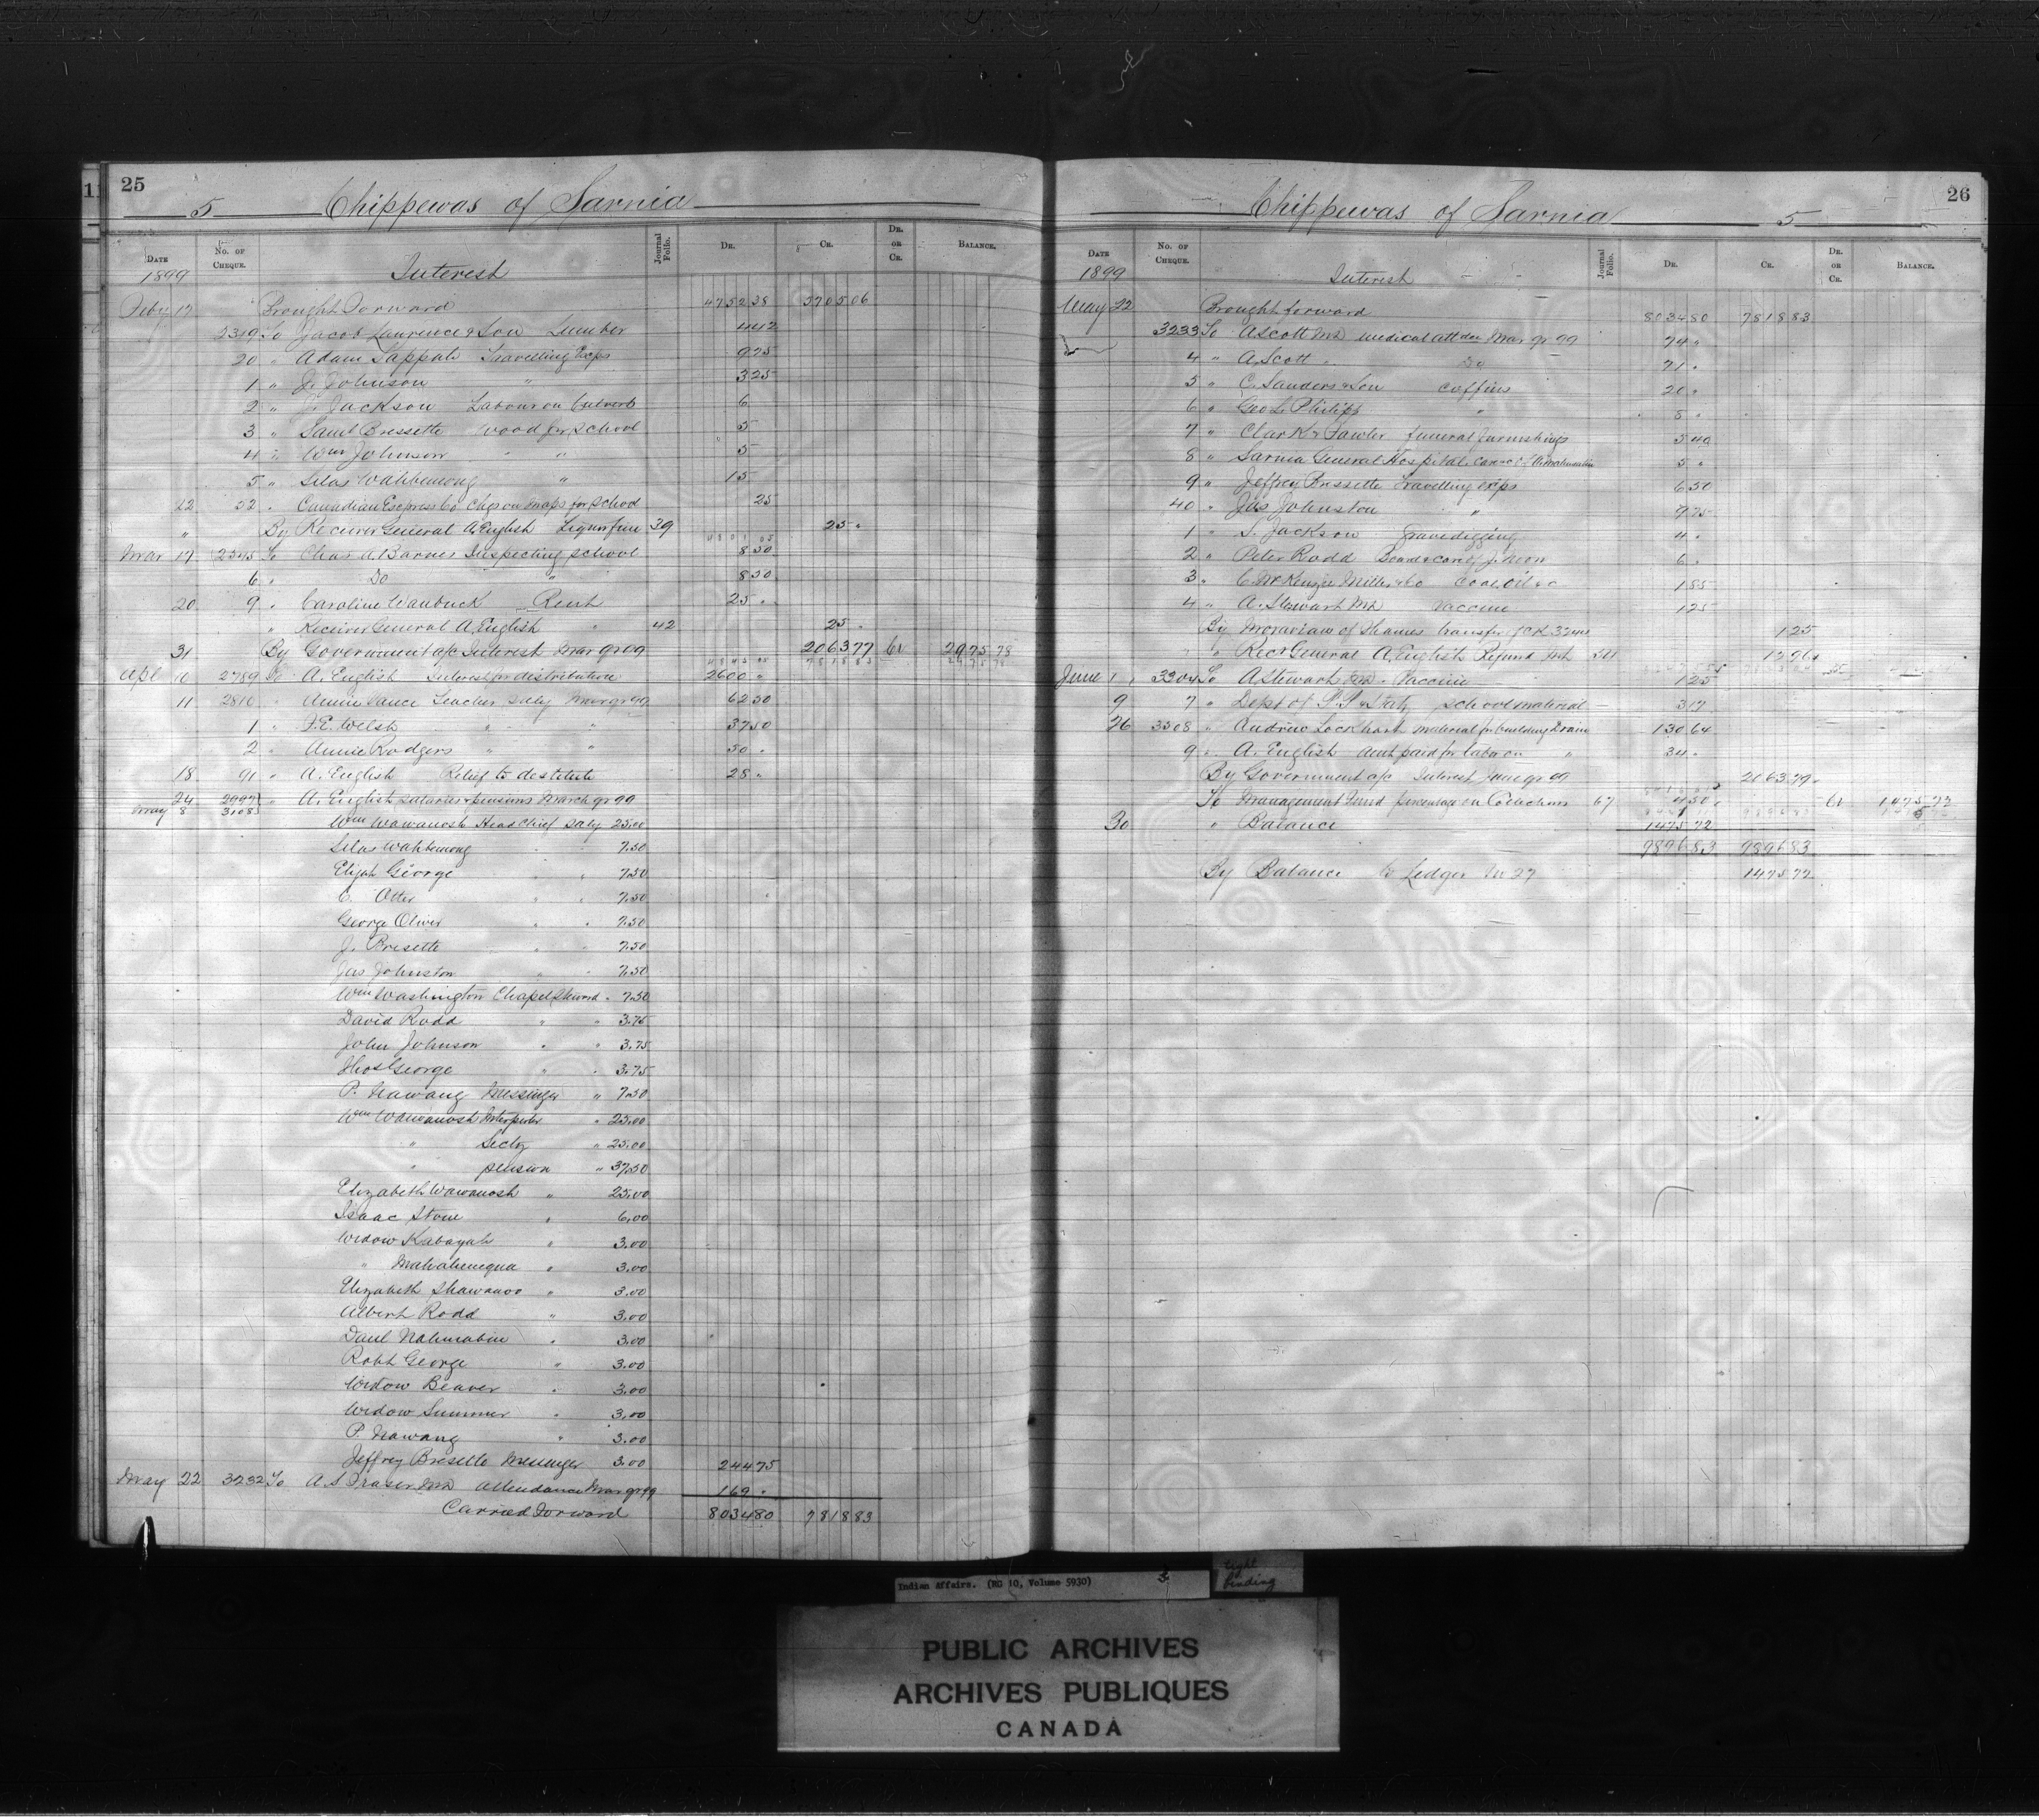 25
5 Chippewas of Sarnia
DATE No. OF CHEQUE. Journal Folio. DR. CR. DR. OR CR. BALANCE.
1899 Interest
Feby 17 Brought Forward 4752 38 5705 06
2319 To Jacob Laurence & Son Lumber 4 42
20 " Adam Sappah Travelling Exps 9 75
1 " J. Johnson " 3 25
2 " J. Jackson Labour on Culverts 6
3 " Saml Bressette Wood for School 5
4 " Wm Johnson " " 5
5 " Silas Wahbemong " 15
22 22 " Canadian Express Co Chgs on maps for School 25
" By Receiver General A. English Liquor fine 39 25 "
Mar 17 2545 To Chas A. Barnes Inspecting School 8 50
6 " Do " 8 50
20 9 " Caroline Waubuck Rent 25 "
" Receiver General A. English " 42 25 "
31 By Government a/c Interest Mar qr 99 2063 77 Cr 2975 78
Apl 10 2789 To A. English Interest for distribution 2600 "
11 2810 " Annie Vance Teacher Saly Mar qr 99 62 50
1 " F. E. Welsh " " 37 50
2 " Annie Rodgers " " 50 "
18 91 " A. English Relief to destitute 28 "
24 2997 " A. English salaries & pensions March qr 99
May 8 3108
Wm Wawanosh Head Chief Saly 25.00
Silas Wahbemong " " 7.50
Elijah George " " 7.50
C. Otter " " 7.50
George Oliver " " 7.50
J. Bresette " " 7.50
Jas Johnston " " 7.50
Wm Washington Chapel Steward " 7.50
David Rodd " " 3.75
John Johnson " " 3.75
Thos George " " 3.75
P. Nawang Messenger " 7.50
Wm Wawanosh Interpreter " 25.00
" Secty " 25.00
" pension " 37.50
Elizabeth Wawanosh " 25.00
Isaac Stone " 6.00
Widow Kabayah " 3.00
" " 3.00
Elizabeth Shawanoo " 3.00
Albert Rodd " 3.00
Danl Nahmabin " 3.00
Robt George " 3.00
Widow Beaver " 3.00
Widow Summer " 3.00
P. Nawang " 3.00
Jeffrey Bresette Messenger 3.00 244 75
May 22 3232 To A. S. Fraser MD Attendance Mar qr 99 169 "
Carried Forward 8034 80 7818 83
26
Chippewas of Sarnia 5
DATE No. OF CHEQUE. Journal Folio. DR. CR. DR. OR CR. BALANCE.
1899 Interest
May 22 Brought forward 8034 80 7818 83
3233 To A Scott MD medical attdce Mar qr 99 74 "
4 " A. Scott " Do 71 "
5 " C. Sanders & Son Coffins 20 "
6 " Geo L. Philips " 8 "
7 " Clark & Fowler funeral furnishings 5 40
8 " Sarnia General Hospital care of 5 "
9 " Jeffrey Bressette Travelling exps 6 50
40 " Jas Johnston " 9 75
1 " S. Jackson Gravedigging 4 "
2 " Peter Rodd Board & care of J. Moon 6 "
3 " C. McKenzie Miller & Co Coal oil &c 1 85
4 " A. Stewart MD Vaccine 1 25
By Moravians of Thames transfer of CK 3244 1 25
" Recr General A. English Refund Int 511 12 96
June 1 3304 To A Stewart MD Vaccine 1 25
9 7 " Dept of P. P. & Staty School material 3 17
26 3508 " Andrew Lockhart material for building drain 130 64
9 " A. English amt paid for labor on " 34 "
By Government a/c Interest June qr 99 2063 79
To Management Fund percentage on Collections 67 4 50 Cr 1475 72
30 " Balance 1475 72
9896 83 9896 83
By Balance to Ledger No 27 1475 72
Indian Affairs. (RG 10, Volume 5930) 3
tight binding
PUBLIC ARCHIVES
ARCHIVES PUBLIQUES
CANADA